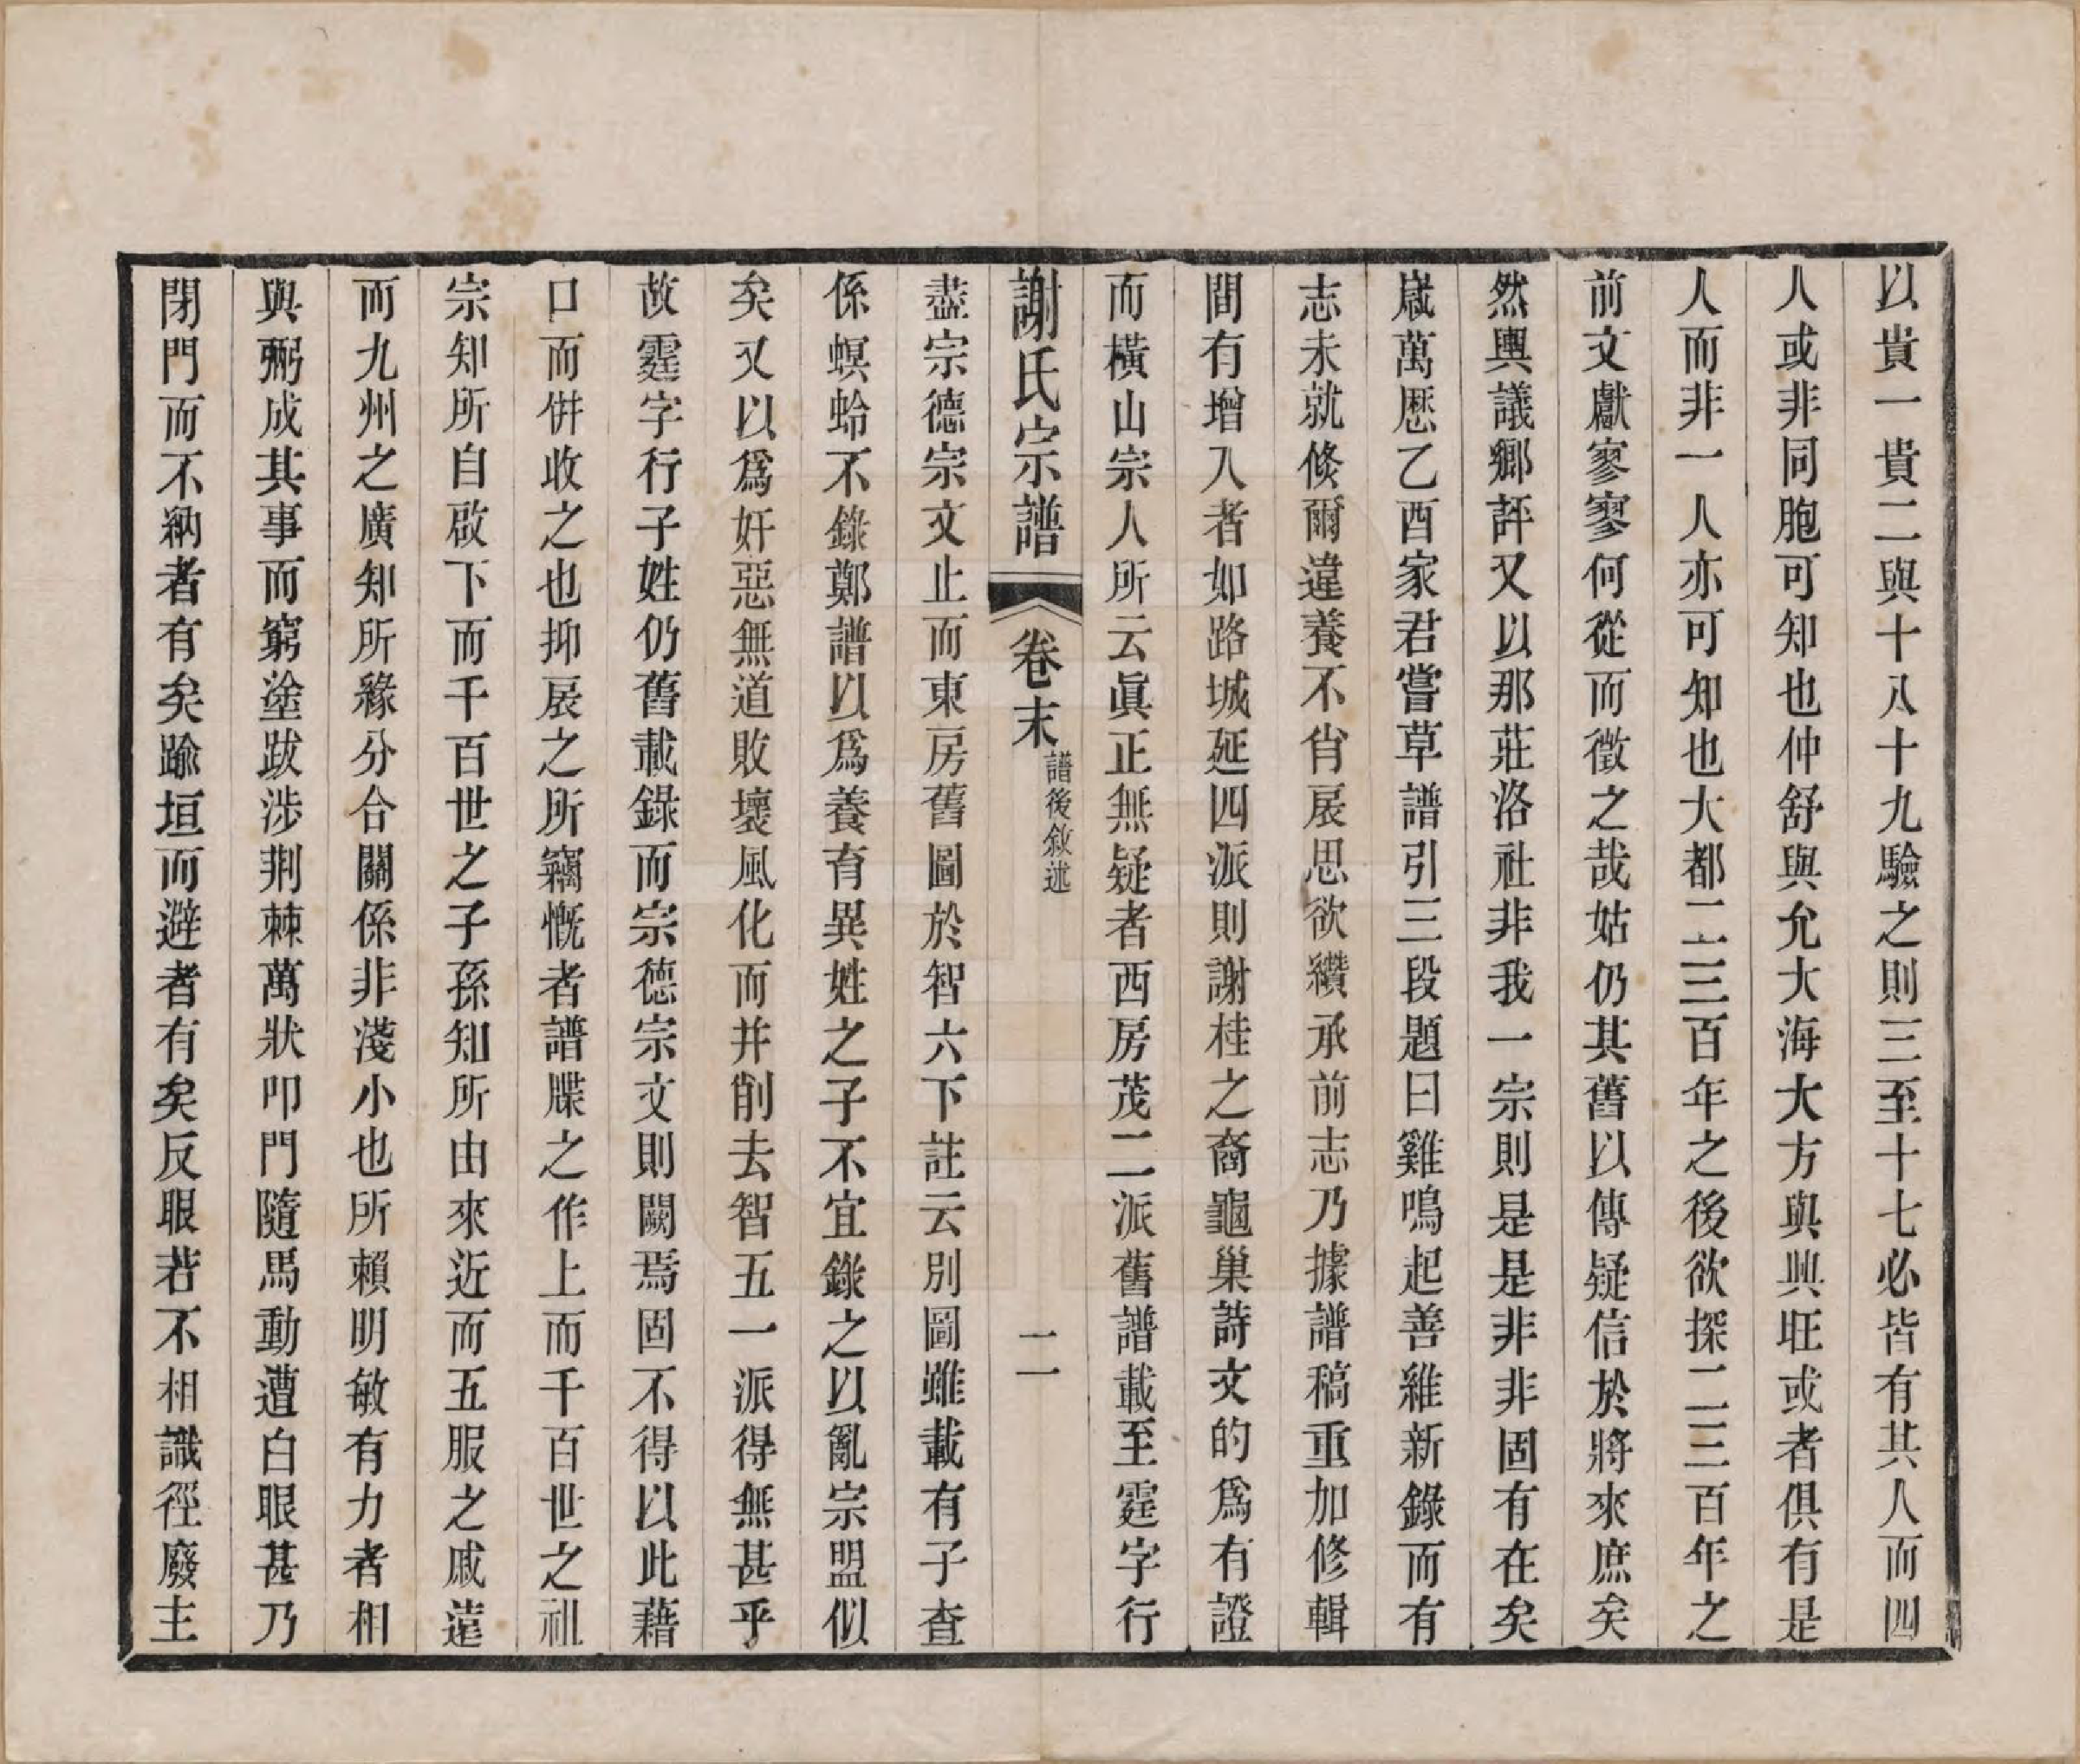 以貴一貴二與十八十九驗之則三至十七必皆有其人而四
人或非同胞可知也仲舒與允大海大方與興旺或者俱有是
人而非一人亦可知也大都二三百年之後欲探二三百年之
前文獻寥寥何從而徵之哉姑仍其舊以傳疑信於將來庶矣
然輿議鄉評又以那莊洛社非我一宗則是是非非固有在矣
嵗萬厯乙酉家君嘗草譜引三段題曰雞鳴起善維新錄而有
志未就倐爾違養不肖扆思欲纘承前志乃據譜稿重加修輯
間有增入者如路城延四派則謝桂之裔龜巢詩文的爲有證
而橫山宗人所云眞正無疑者西房茂二派舊譜載至霆字行
謝氏宗譜 卷末 譜後敘述 二
盡宗德宗文止而東房舊圖於智六下註云別圖雖載有子查
係螟蛉不錄鄭譜以爲養育異姓之子不宜錄之以亂宗盟似
矣又以爲奸惡無道敗壞風化而并削去智五一派得無甚乎
故霆字行子姓仍舊載錄而宗德宗文則闕焉固不得以此藉
口而併收之也抑扆之所竊慨者譜牒之作上而千百世之祖
宗知所自啟下而千百世之子孫知所由來近而五服之戚遠
而九州之廣知所緣分合關係非淺小也所賴明敏有力者相
與弼成其事而窮塗跋涉荆棘萬狀叩門隨馬動遭白眼甚乃
閉門而不納者有矣踰垣而避者有矣反眼若不相識徑廢主